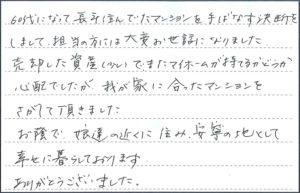 60代になって長年住んでたマンションを手ばなす決断を
しまして、担当の方には大変お世話になりました
売却した資産(のみ)でまたマイホームが持てるかどうか
心配でしたが、我が家に合ったマンションを
さがして頂きました
お陰で 娘達の近くに住み、安寧の地として
幸せに暮らしております
ありがとうございました。